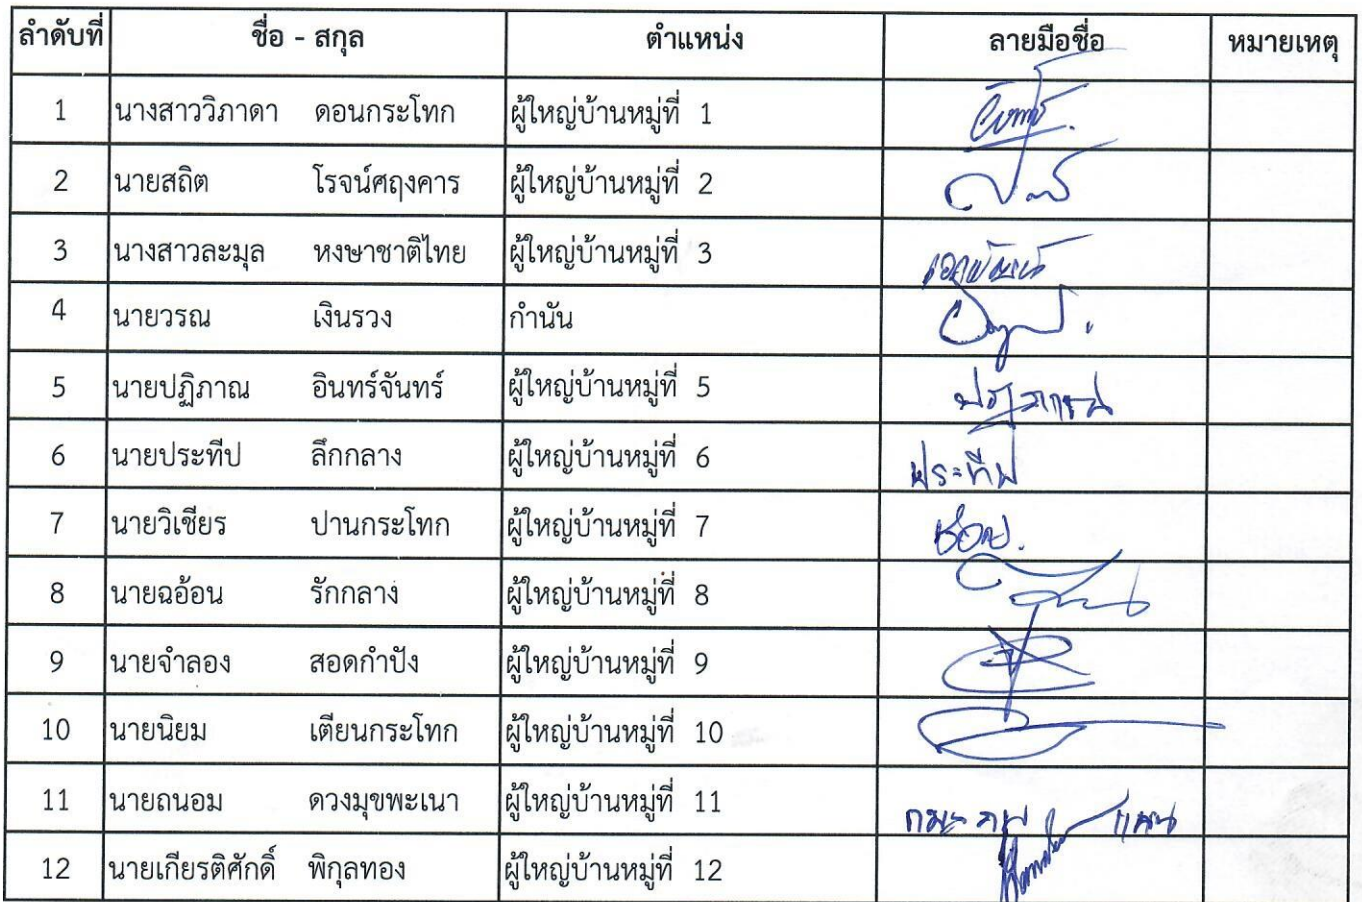 ลำดับที่ ชื่อ - สกุล ตำแหน่ง ลายมือชื่อ หมายเหตุ
1 นางสาววิภาดา ดอนกระโทก ผู้ใหญ่บ้านหมู่ที่ 1
2 นายสถิต โรจน์ศฤงคาร ผู้ใหญ่บ้านหมู่ที่ 2
3 นางสาวละมุล หงษาชาติไทย ผู้ใหญ่บ้านหมู่ที่ 3
4 นายวรณ เงินรวง กำนัน
5 นายปฏิภาณ อินทร์จันทร์ ผู้ใหญ่บ้านหมู่ที่ 5
6 นายประทีป ลึกกลาง ผู้ใหญ่บ้านหมู่ที่ 6 ประทีป
7 นายวิเชียร ปานกระโทก ผู้ใหญ่บ้านหมู่ที่ 7
8 นายฉอ้อน รักกลาง ผู้ใหญ่บ้านหมู่ที่ 8
9 นายจำลอง สอดกำปัง ผู้ใหญ่บ้านหมู่ที่ 9
10 นายนิยม เตียนกระโทก ผู้ใหญ่บ้านหมู่ที่ 10
11 นายถนอม ดวงมุขพะเนา ผู้ใหญ่บ้านหมู่ที่ 11
12 นายเกียรติศักดิ์ พิกุลทอง ผู้ใหญ่บ้านหมู่ที่ 12